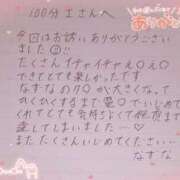 100分 土さんへ
ありがとう
今回はお誘いありがとうござい
ました
たくさんイチャイチャえ○え○
できてとても楽しかったです
なすなのク○が大きくなって
のくかすくらい電○でいじめて
くれてとても気持ちくて何度も
達してしまいました〜♡
またたくさんいじめてください♡
なすな